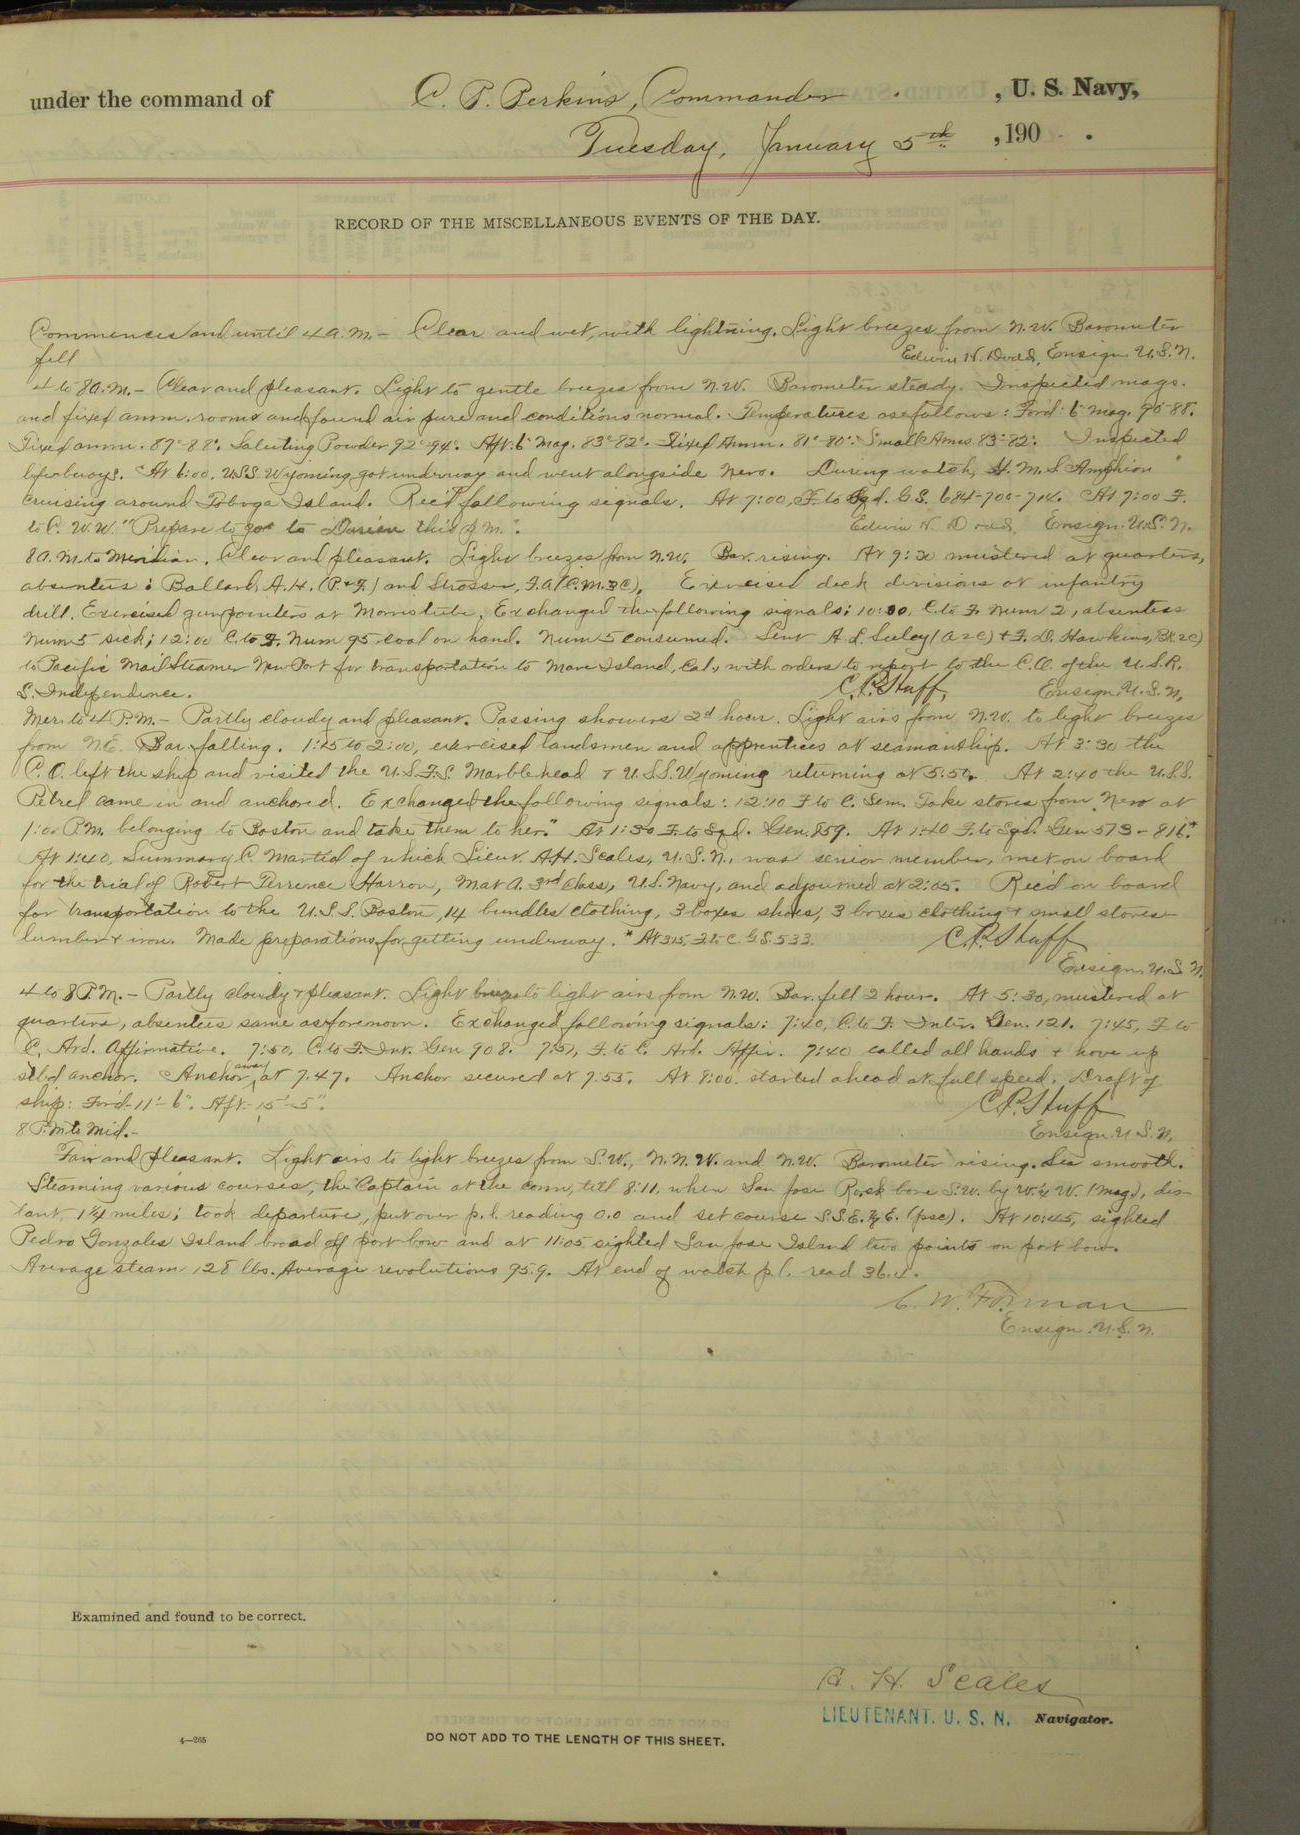 under the command of C. P. Perkins, Commander , U. S. Navy,
Tuesday, January 5th , 190 .
RECORD OF THE MISCELLANEOUS EVENTS OF THE DAY.
Commences and until 4 a.m. – Clear and wet, with lightning. Light breezes from N.W. Barometer
fell Edwin H. Dodd, Ensign U.S.N.
4 to 8 a.m. – Clear and pleasant. Light to gentle breezes from N.W. Barometer steady. Inspected mags.
and fixed amm. rooms and found air pure and conditions normal. Temperatures as follows: Ford. 6" Mag. 90°-88°.
Fixed amm. 87°-88°. Saluting Powder 92°-94°. Aft. 6" Mag. 83°-82°. Fixed Amm. 81°-80°. Small Arms 83°-82°. Inspected
lifebuoys. At 6:00, U.S.S. Wyoming got underway and went alongside Nero. During watch, H.M.S. Amphion
cruising around Taboga Island. Rec'd following signals. At 7:00, F. to Sqd. G.S. 684-700-714. At 7:00 F.
to C. W.W. "Prepare to go to Darien this p.m.". Edwin H. Dodd, Ensign U.S.N.
8 a.m. to Meridian. Clear and pleasant. Light breezes from N.W. Bar. rising. At 9:30 mustered at quarters,
absentees: Ballard, A.H. (P.&F.) and Strosser, F.A. (C.M.3C). Exercised deck divisions at infantry
drill. Exercised gun pointers at Morris tube. Exchanged the following signals; 10:30, C. to F. Num 2, absentees
Num 5 sick; 12:00 C. to F. Num 95 coal on hand. Num 5 consumed. Sent A.L. Seeley (A2C) & F.D. Hawkins,
to Pacific Mail Steamer Newport for transportation to Mare Island, Cal., with orders to report to the C.O. of the U.S.R.
S. Independence. C.P. Huff, Ensign U.S.N.
Mer. to 4 P.M. – Partly cloudy and pleasant. Passing showers 2d hour. Light airs from N.W. to light breezes
from N.E. Bar. falling. 1:15 to 2:00, exercised landsmen and apprentices at seamanship. At 3:30 the
C.O. left the ship and visited the U.S.F.S. Marblehead & U.S.S. Wyoming returning at 5:50. At 2:40 the U.S.S.
Petrel came in and anchored. Exchanged the following signals: 12:10 F. to C. Sem. "Take stores from Nero at
1:00 P.M. belonging to Boston and take them to her." At 1:30 F. to Sqd. Gen. 859. At 1:40 F. to Sqd. Gen 573-816.*
At 1:40, Summary C. Martial of which Lieut. A.H. Scales, U.S.N., was senior member, met on board
for the trial of Robert Terrence Harron, Mat. A. 3rd Class, U.S. Navy, and adjourned at 2:05. Rec'd on board
for transportation to the U.S.S. Boston, 14 bundles clothing, 3 boxes shoes, 3 boxes clothing & small stores
lumber & iron. Made preparations for getting underway. * At 3:15 F. to C. G.S. 533. C.P. Huff
Ensign U.S.N.
4 to 8 P.M. – Partly cloudy & pleasant. Light breeze to light airs from N.W. Bar. fell 2 hour. At 5:30, mustered at
quarters, absentees same as forenoon. Exchanged following signals: 7:40, C. to F. Inter. Gen. 121. 7:45, F. to
C. Ard. Affirmative. 7:50, C. to F. Int. Gen 908. 7:51, F. to C. Ard. Affir. 7:40 called all hands & hove up
stbd anchor. Anchor away at 7.47. Anchor secured at 7:55. At 8:00 started ahead at full speed. Draft of
ship: For'd-11'-6". Aft-15'-5". C.P. Huff
8 P.M. to Mid. – Ensign U.S.N.
Fair and pleasant. Light airs to light breezes from S.W., N.N.W. and N.W. Barometer rising. Sea smooth.
Steaming various courses, the Captain at the conn, till 8:11, when San Jose Rock bore S.W. by W. ¼ W. (mag), dis-
tant 1¼ miles; took departure, put over p.l. reading 0.0 and set course S.S.E. ¾ E. (psc). At 10:45, sighted
Pedro Gonzales Island broad off port bow and at 11:05 sighted San Jose Island two points on port bow.
Average steam 128 lbs. Average revolutions 95.9. At end of watch p.l. read 36.4.
C. W. Forman
Ensign U.S.N.
Examined and found to be correct.
A. H. Scales
LIEUTENANT. U. S. N. Navigator.
4—265 DO NOT ADD TO THE LENGTH OF THIS SHEET.